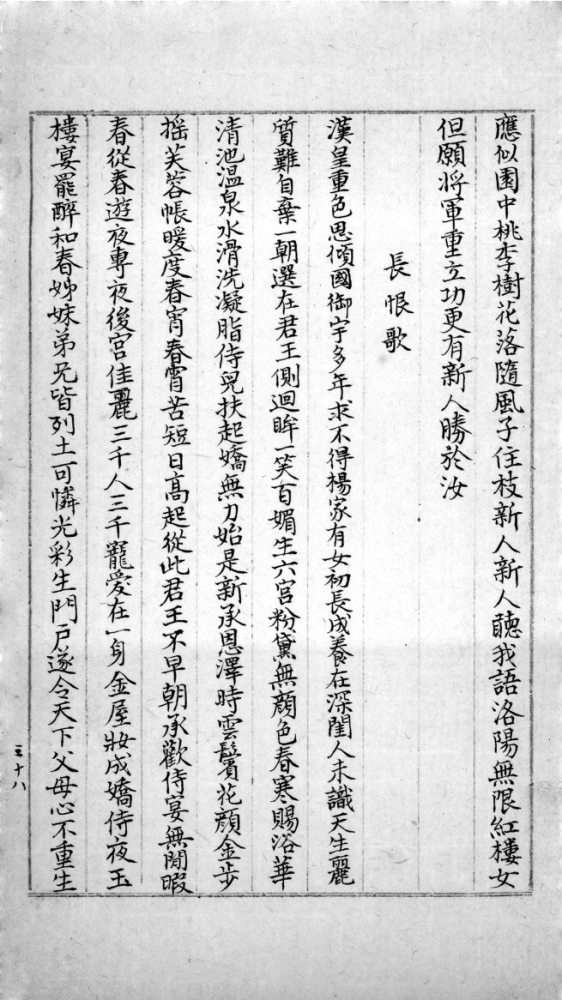 應似園中桃李樹花落隨風子住枝新人新人聽我語洛陽無限紅樓女
但願將軍重立功更有新人勝於汝
長恨歌
漢皇重色思傾國御宇多年求不得楊家有女初長成養在深閨人未識天生麗
質難自棄一朝選在君王側迴眸一笑百媚生六宮粉黛無顏色春寒賜浴華
清池温泉水滑洗凝脂侍兒扶起嬌無力始是新承恩澤時雲鬢花顏金步
摇芙蓉帳暖度春宵春宵苦短日高起從此君王不早朝承歡侍宴無閒暇
春從春遊夜專夜後宮佳麗三千人三千寵愛在一身金屋妝成嬌侍夜玉
樓宴罷醉和春姊妹弟兄皆列土可憐光彩生門戶遂令天下父母心不重生
三十八